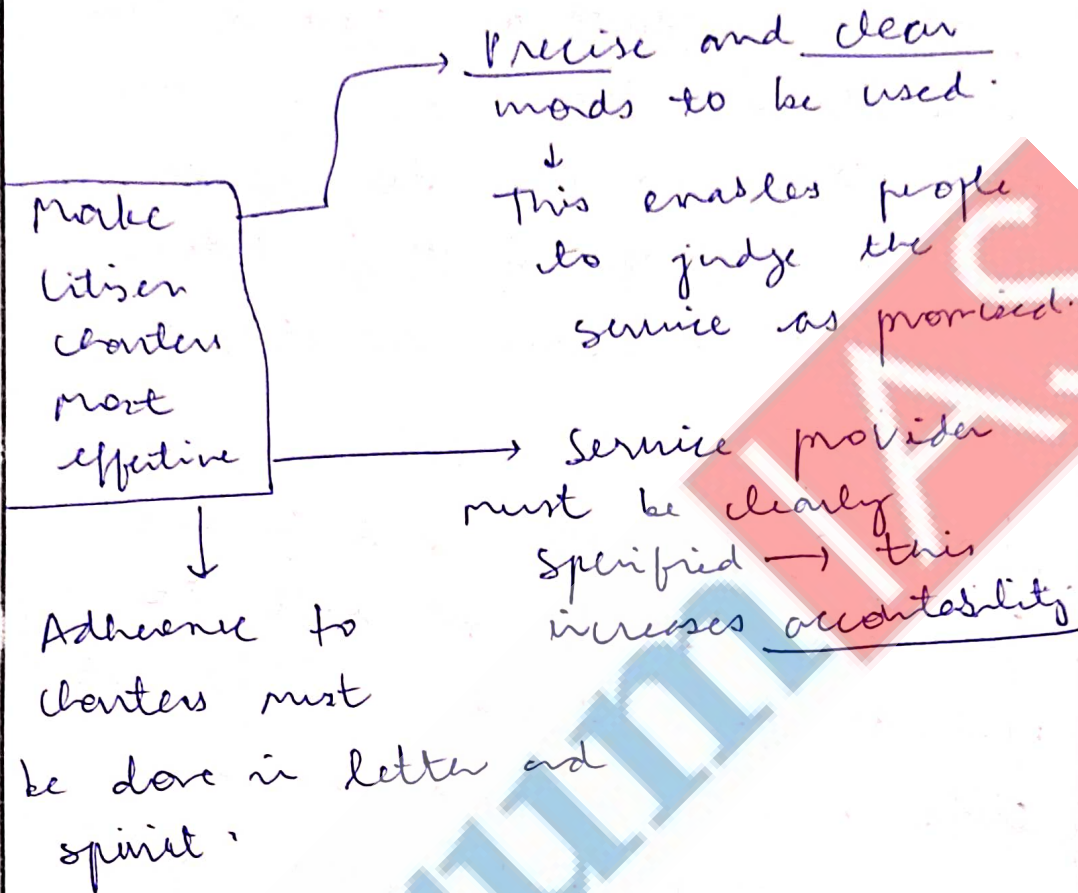 Make
Citizen
charters
most
effective
Precise and clear
words to be used.
↓
This enables people
to judge the
service as promised.
Service provider
must be clearly
specified → this
increases accountability
Adherence to
charters must
be done in letter and
spirit.
IAS
um